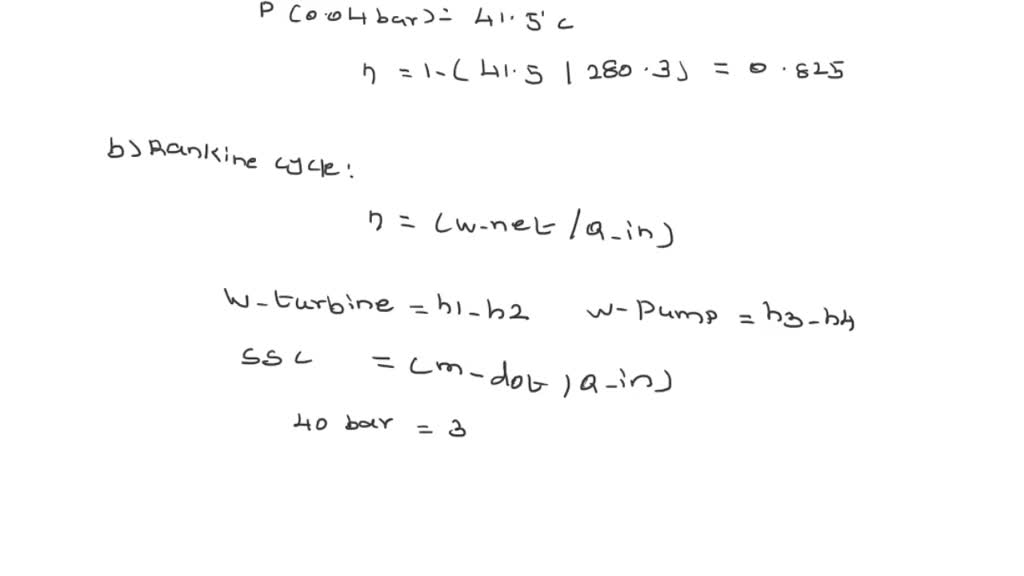 P (0.04 bar) = 41.5°c
η = 1-( 41.5 | 280.3) = 0.825
b) Rankine cycle:
η = (w-net /Q-in)
W-turbine = h1-h2 w- Pump = h3-h4
SSC = (m-dot / Q-in)
40 bar = 3